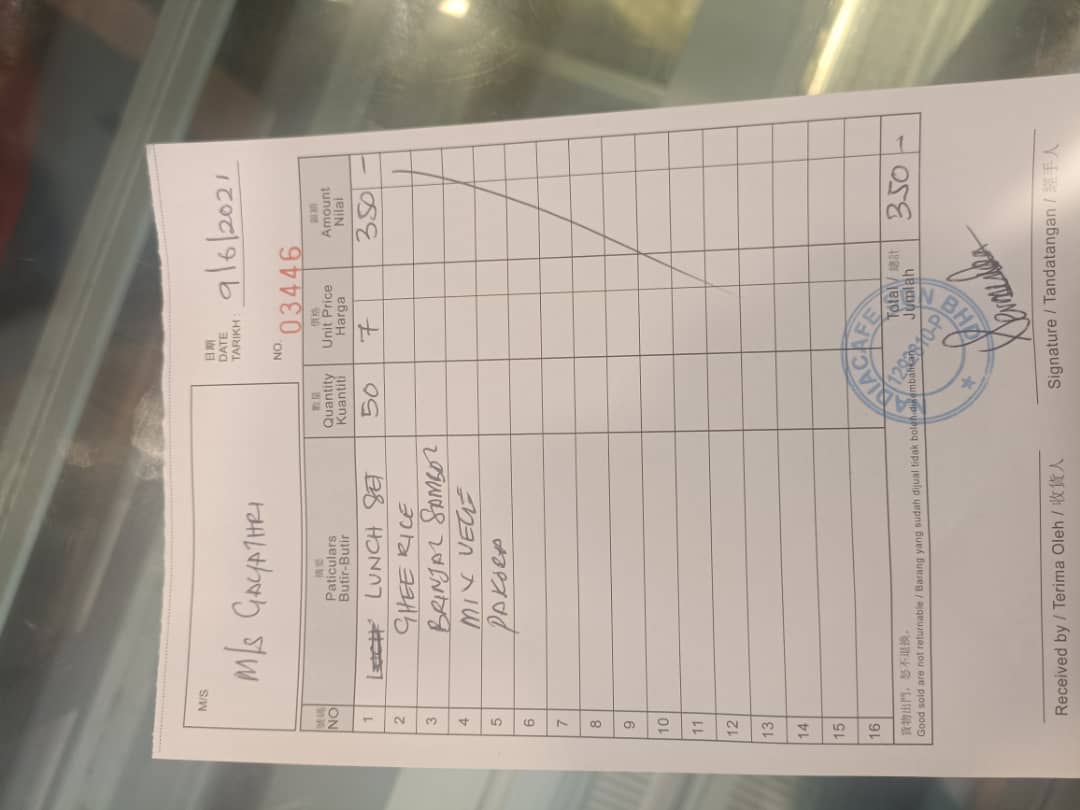 日期
DATE
TARIKH : 9/6/2021
NO. 03446
M/S
M/S GAYATHRI
號碼 摘要 數量 價格 銀額
NO Paticulars Quantity Unit Price Amount
Butir-Butir Kuantiti Harga Nilai
1 LUNCH SET 50 7 350 -
2 GHEE RICE
3 BRINJAL SAMBOL
4 MIX VEGE
5 PAKORA
6
7
8
9
10
11
12
13
14
15
16
貨物出門，恕不退換。 Total / 總計 350 -
Good sold are not returnable / Barang yang sudah dijual tidak boleh dikembalikan Jumlah
ADIACAFE BHD
Received by / Terima Oleh / 收貨人 Signature / Tandatangan / 經手人